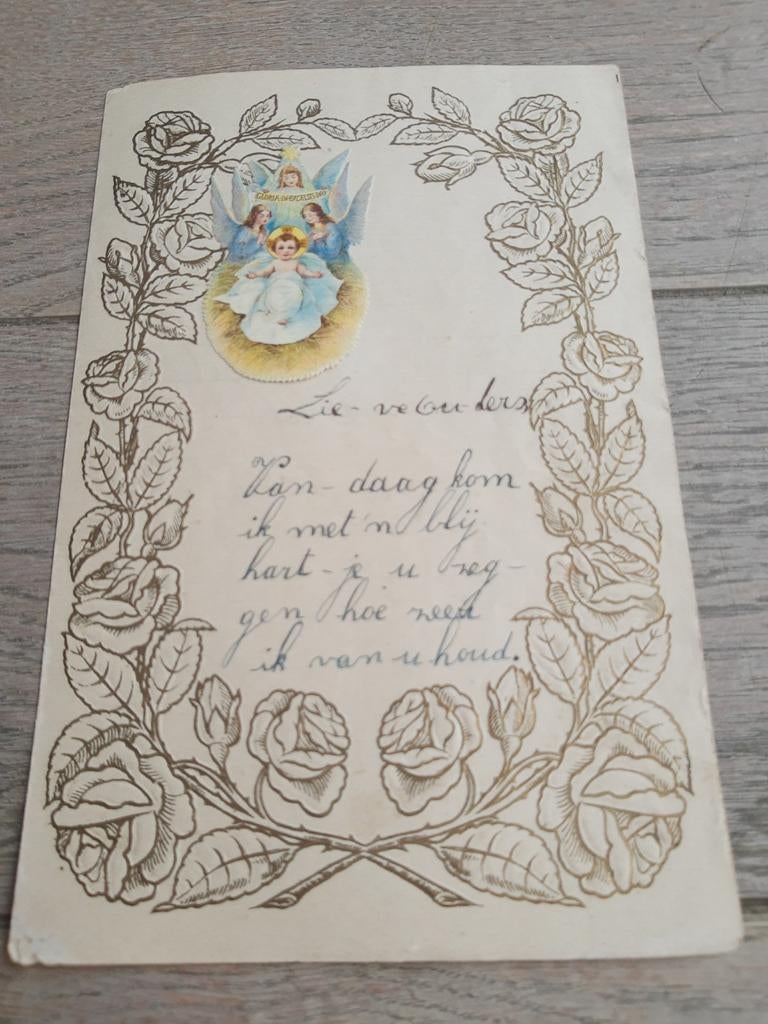 GLORIA·IN·EXCELSIS·DEO
Lie- ve Ou- ders,
Van- daag kom
ik met 'n blij
hart- je u zeg-
gen hoe zeer
ik van u houd.